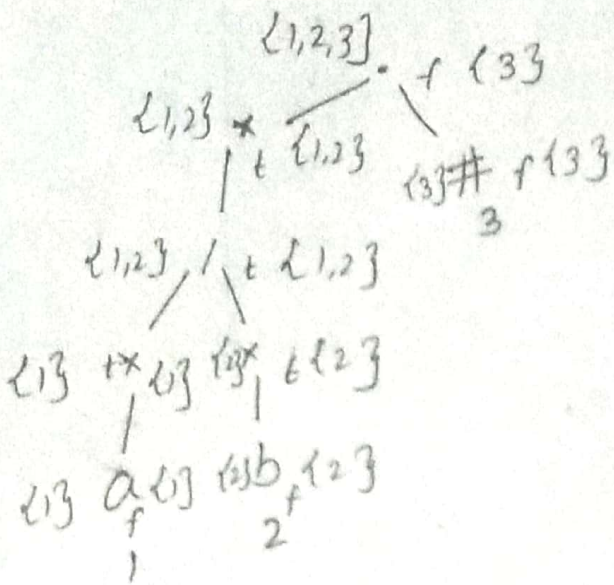 {1,2,3} . f {3}
{1,2} * t {1,2}
{3} # f {3}
3
{1,2} / t {1,2}
{1} t* {1} {2} * t {2}
{1} a {1} {2} b f {2}
f
1 2